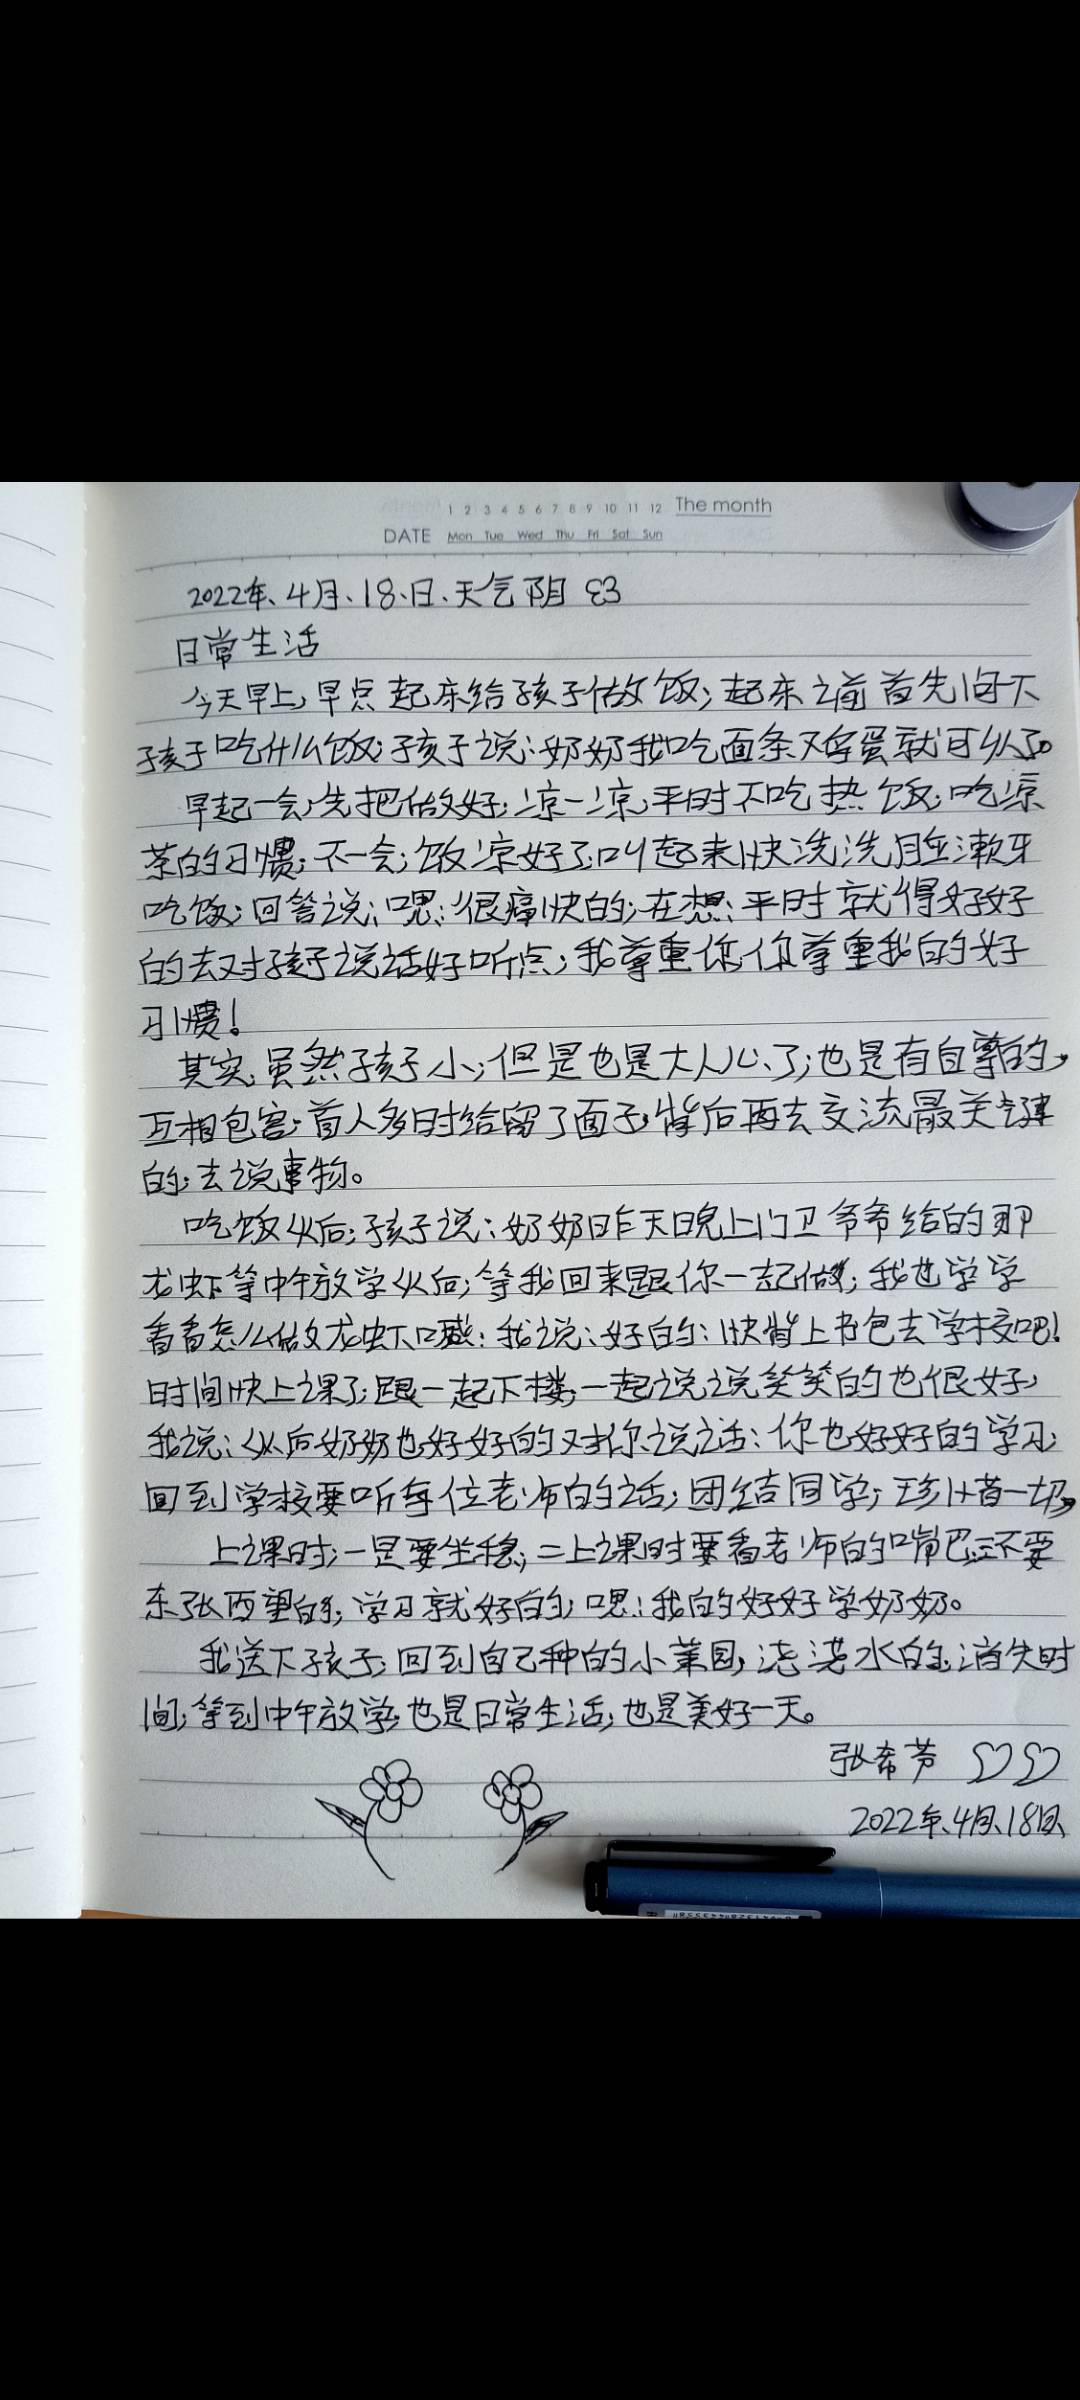 1 2 3 4 5 6 7 8 9 10 11 12 The month
DATE Mon Tue Wed Thu Fri Sat Sun
2022年、4月、18、日、天气阴
日常生活
今天早上,早点起床给孩子做饭;起床之前首先问下
孩子吃什么饭;孩子说:奶奶我吃面条又鸡蛋就可以了。
早起一会,先把做好;凉一凉,平时不吃热饭;吃凉
茶的习惯;不一会;饭凉好了;叫起来快洗洗脸漱牙
吃饭;回答说;嗯;很痛快的;在想;平时就得好好
的去对孩子说话好听点;我尊重你你尊重我的好
习惯!
其实,虽然孩子小;但是也是大人心了;也是有自尊的,
互相包容;首人多时给留了面子,背后再去交流最关键
的;去说事物。
吃饭以后;孩子说:奶奶昨天晚上门卫爷爷给的那
龙虾等中午放学以后;等我回来跟你一起做;我也学学
看看怎么做龙虾:我说:好的:快背上书包去学校吧!
时间快上课了;跟一起下楼;一起说说笑笑的也很好;
我说:以后奶奶也好好的对你说话:你也好好的学习;
回到学校要听每位老师的话;团结同学;珍惜一切,
上课时;一是要坐稳;二上课时要看老师的嘴巴;三不要
东张西望的;学习就好的;嗯:我的好好学奶奶。
我送下孩子;回到自己种的小菜园,浇浇水的;消失时
间;等到中午放学;也是日常生活;也是美好一天。
张希芳
2022年、4月、18日、